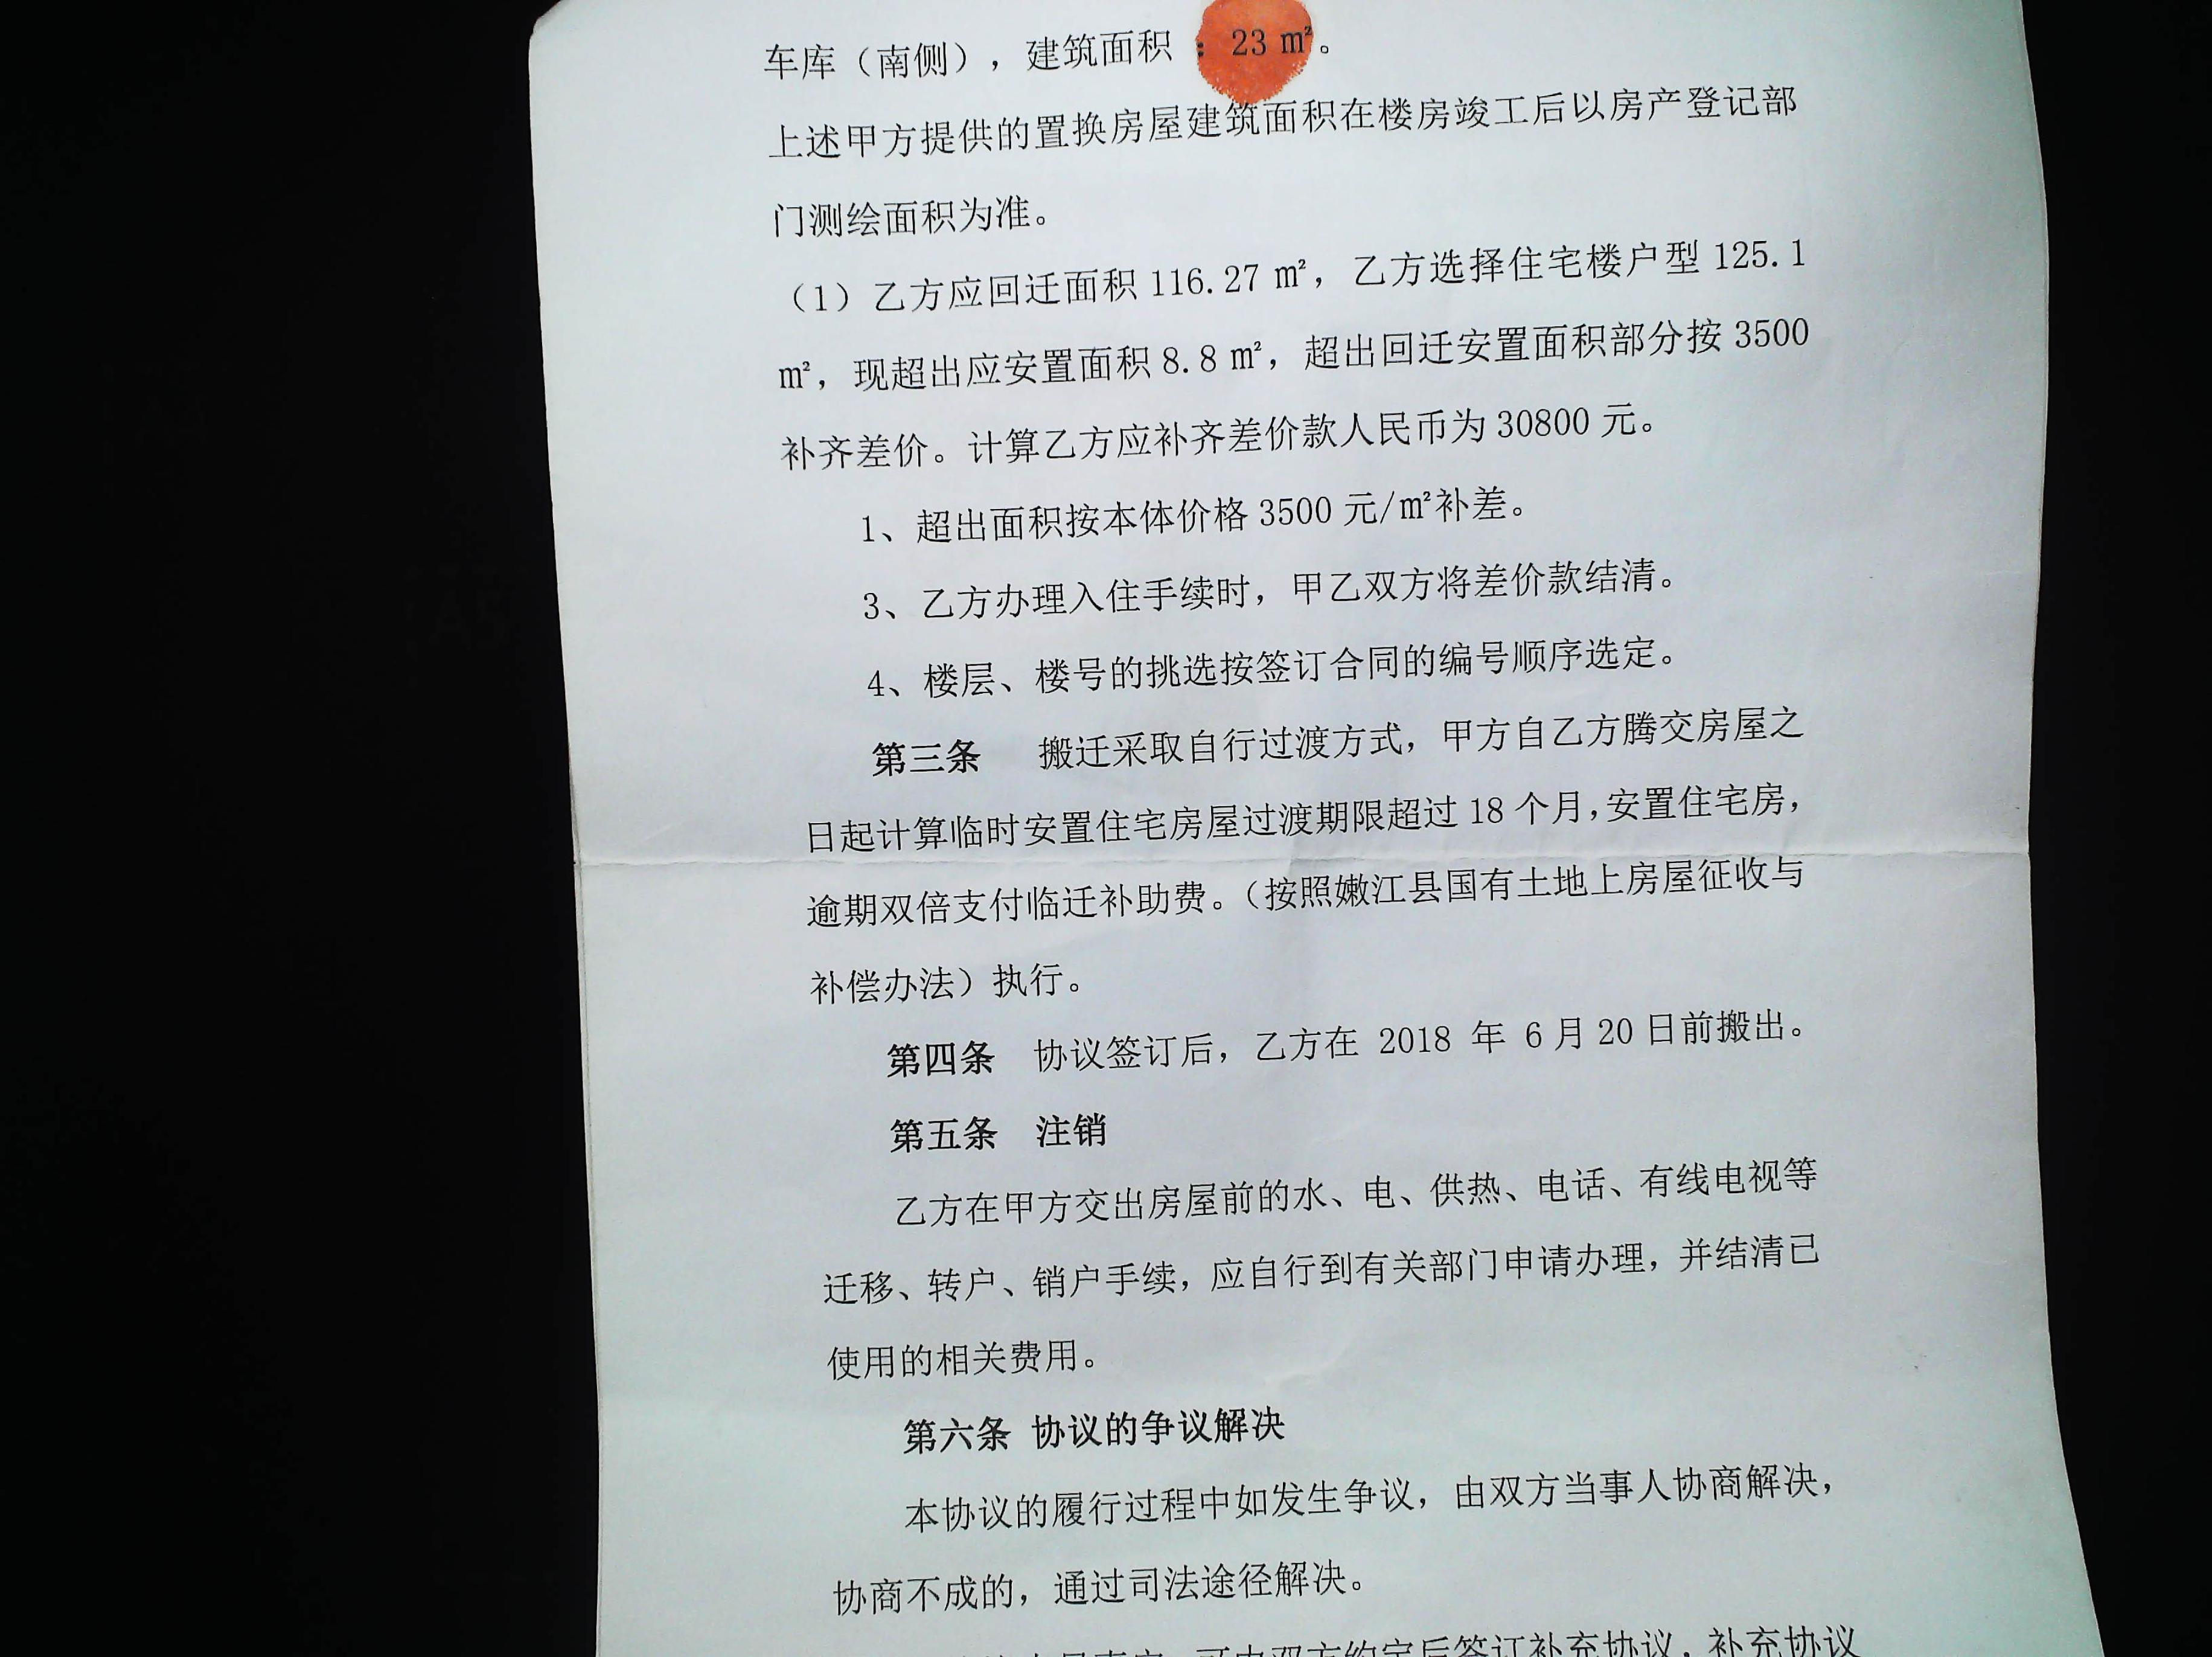 车库（南侧），建筑面积：23㎡。
上述甲方提供的置换房屋建筑面积在楼房竣工后以房产登记部
门测绘面积为准。
（1）乙方应回迁面积 116.27 ㎡，乙方选择住宅楼户型 125.1
㎡，现超出应安置面积 8.8 ㎡，超出回迁安置面积部分按 3500
补齐差价。计算乙方应补齐差价款人民币为 30800 元。
1、超出面积按本体价格 3500 元/㎡补差。
3、乙方办理入住手续时，甲乙双方将差价款结清。
4、楼层、楼号的挑选按签订合同的编号顺序选定。
第三条 搬迁采取自行过渡方式，甲方自乙方腾交房屋之
日起计算临时安置住宅房屋过渡期限超过 18 个月，安置住宅房，
逾期双倍支付临迁补助费。（按照嫩江县国有土地上房屋征收与
补偿办法）执行。
第四条 协议签订后，乙方在 2018 年 6 月 20 日前搬出。
第五条 注销
乙方在甲方交出房屋前的水、电、供热、电话、有线电视等
迁移、转户、销户手续，应自行到有关部门申请办理，并结清已
使用的相关费用。
第六条 协议的争议解决
本协议的履行过程中如发生争议，由双方当事人协商解决，
协商不成的，通过司法途径解决。
可由双方约定后签订补充协议，补充协议